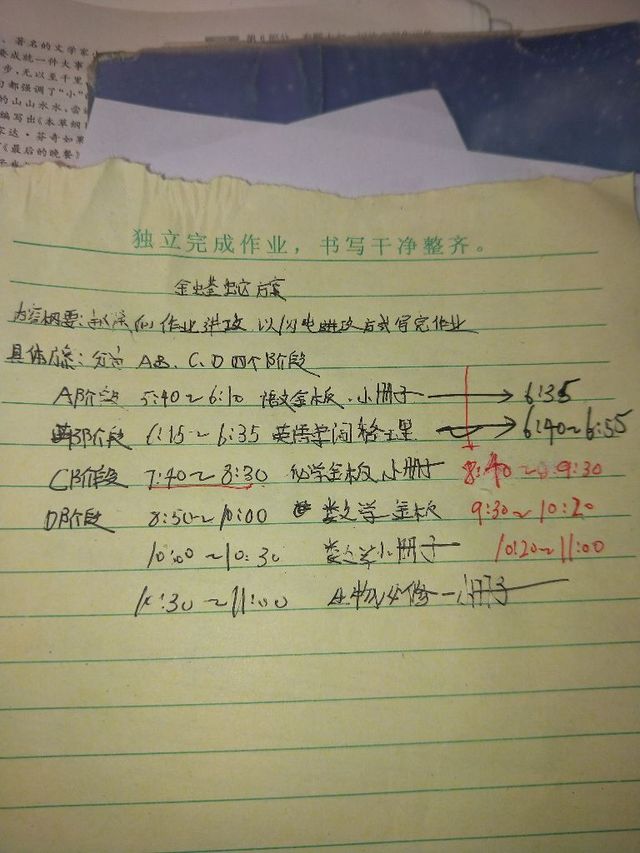 、著名的文学家
要成就一件大事
步,无以至千里
都强调了“小”
的山山水水,
编写出《本草纲
达·芬奇如果
《最后的晚餐》
独立完成作业,书写干净整齐。
方案
内容概要: 向作业进攻 以闪电进攻方式写完作业
具体方案:分为 A B、C、D 四个阶段
A阶段 5:40~6:10 语文金板、小册子 → 6:35
B阶段 6:15~6:35 英语 → 6:40~6:55
C阶段 7:40~8:30 化学金板、小册子 8:40~9:30
D阶段 8:50~10:00 数学金板 9:30~10:20
10:00~10:30 数学小册子 10:20~11:00
10:30~11:00 生物必修一小册子